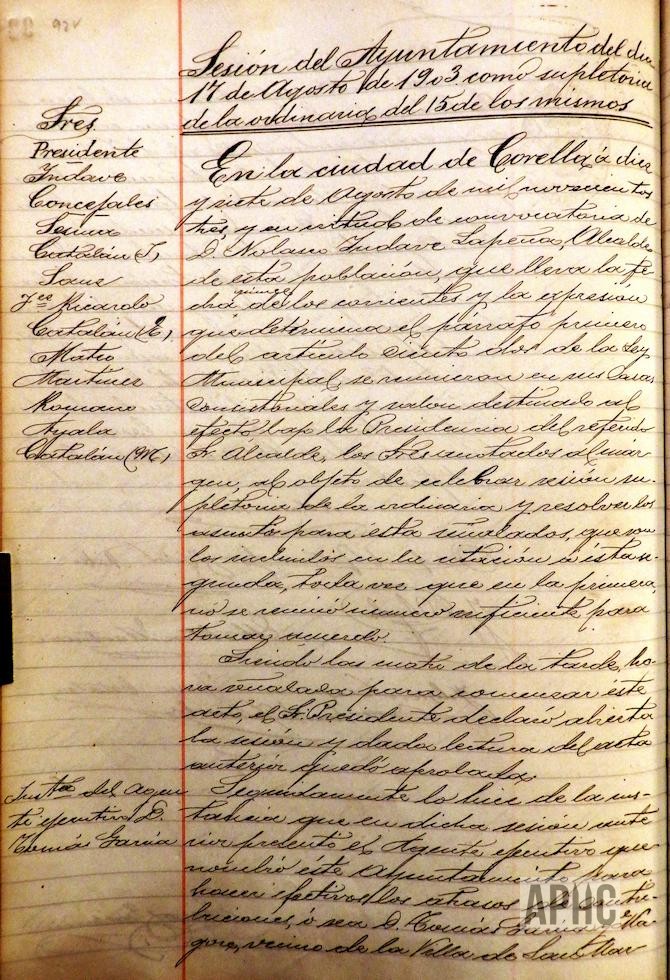 92v
Sesión del Ayuntamiento del día
17 de Agosto de 1903 como supletoria
de la ordinaria del 15 de los mismos
Sres.
Presidente
Indave
Concejales
Sesma
Catalán (J)
Sanz
Ricardo
Catalán (E)
Mateo
Martinez
Romano
Ayala
Catalán (M)
En la ciudad de Corella, á diez
y siete de Agosto de mil novecientos
tres, y en virtud de convocatoria de
D. Nolasco Indave Lapeña, Alcalde
de esta población, que lleva la fe-
cha quince de los corrientes y la expresion
que determina el parrafo primero
del articulo ciento dos de la Ley
Municipal, se reunieron en sus Casas
Consistoriales y salon destinado al
efecto bajo la Presidencia del referido
Sr. Alcalde, los Sres. anotados al már-
gen, al objeto de celebrar sesión su-
pletoria de la ordinaria y resolver los
asuntos para ésta señalados, que son
los incluidos en la citación a ésta se-
gunda, toda vez que en la primera,
no se reunió número suficiente para
tomar acuerdo.
Siendo las cuatro de la tarde, ho-
ra señalada para comenzar éste
acto, el Sr. Presidente declaró abierta
la sesión y dada lectura del acta
anterior quedó aprobada.
Instª del Agen-
te ejecutivo D.
Tomás Garcia
Seguidamente lo hice de la ins-
tancia que en dicha sesión ante-
rior presentó el Agente ejecutivo que
nombró éste Ayuntamiento para
hacer efectivos los atrasos de contri-
buciones, ó sea D. Tomás Garcia y
vecino de la Villa de San Mar
APHC